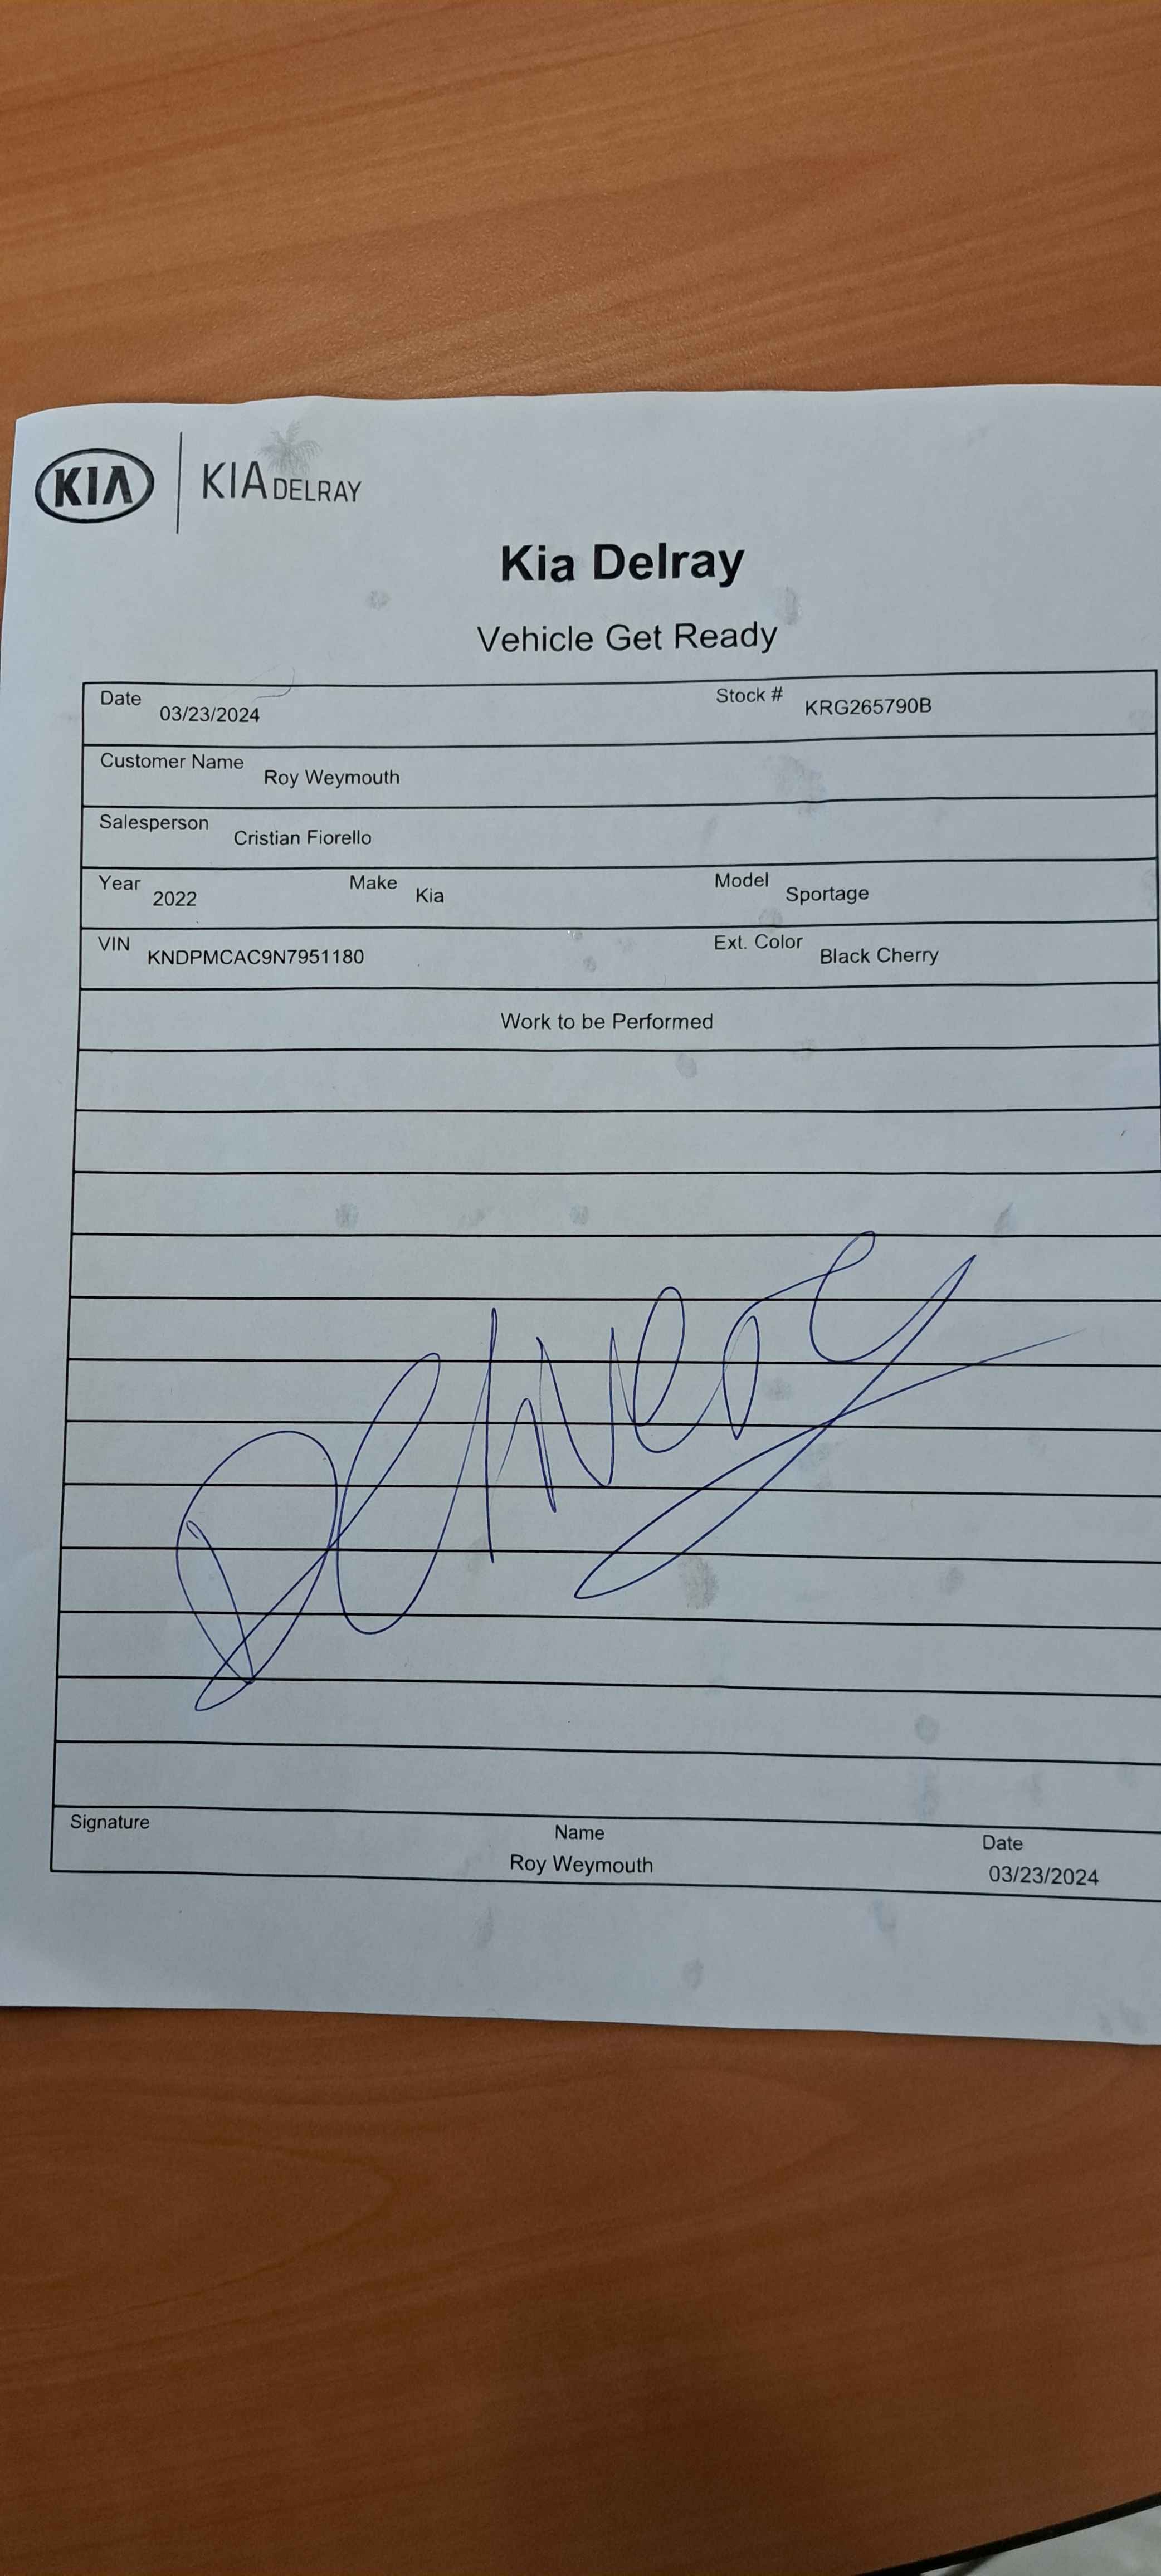 KIA KIA DELRAY
Kia Delray
Vehicle Get Ready
Date 03/23/2024 Stock # KRG265790B
Customer Name Roy Weymouth
Salesperson Cristian Fiorello
Year 2022 Make Kia Model Sportage
VIN KNDPMCAC9N7951180 Ext. Color Black Cherry
Work to be Performed
Delivery
Signature Name Date
Roy Weymouth 03/23/2024